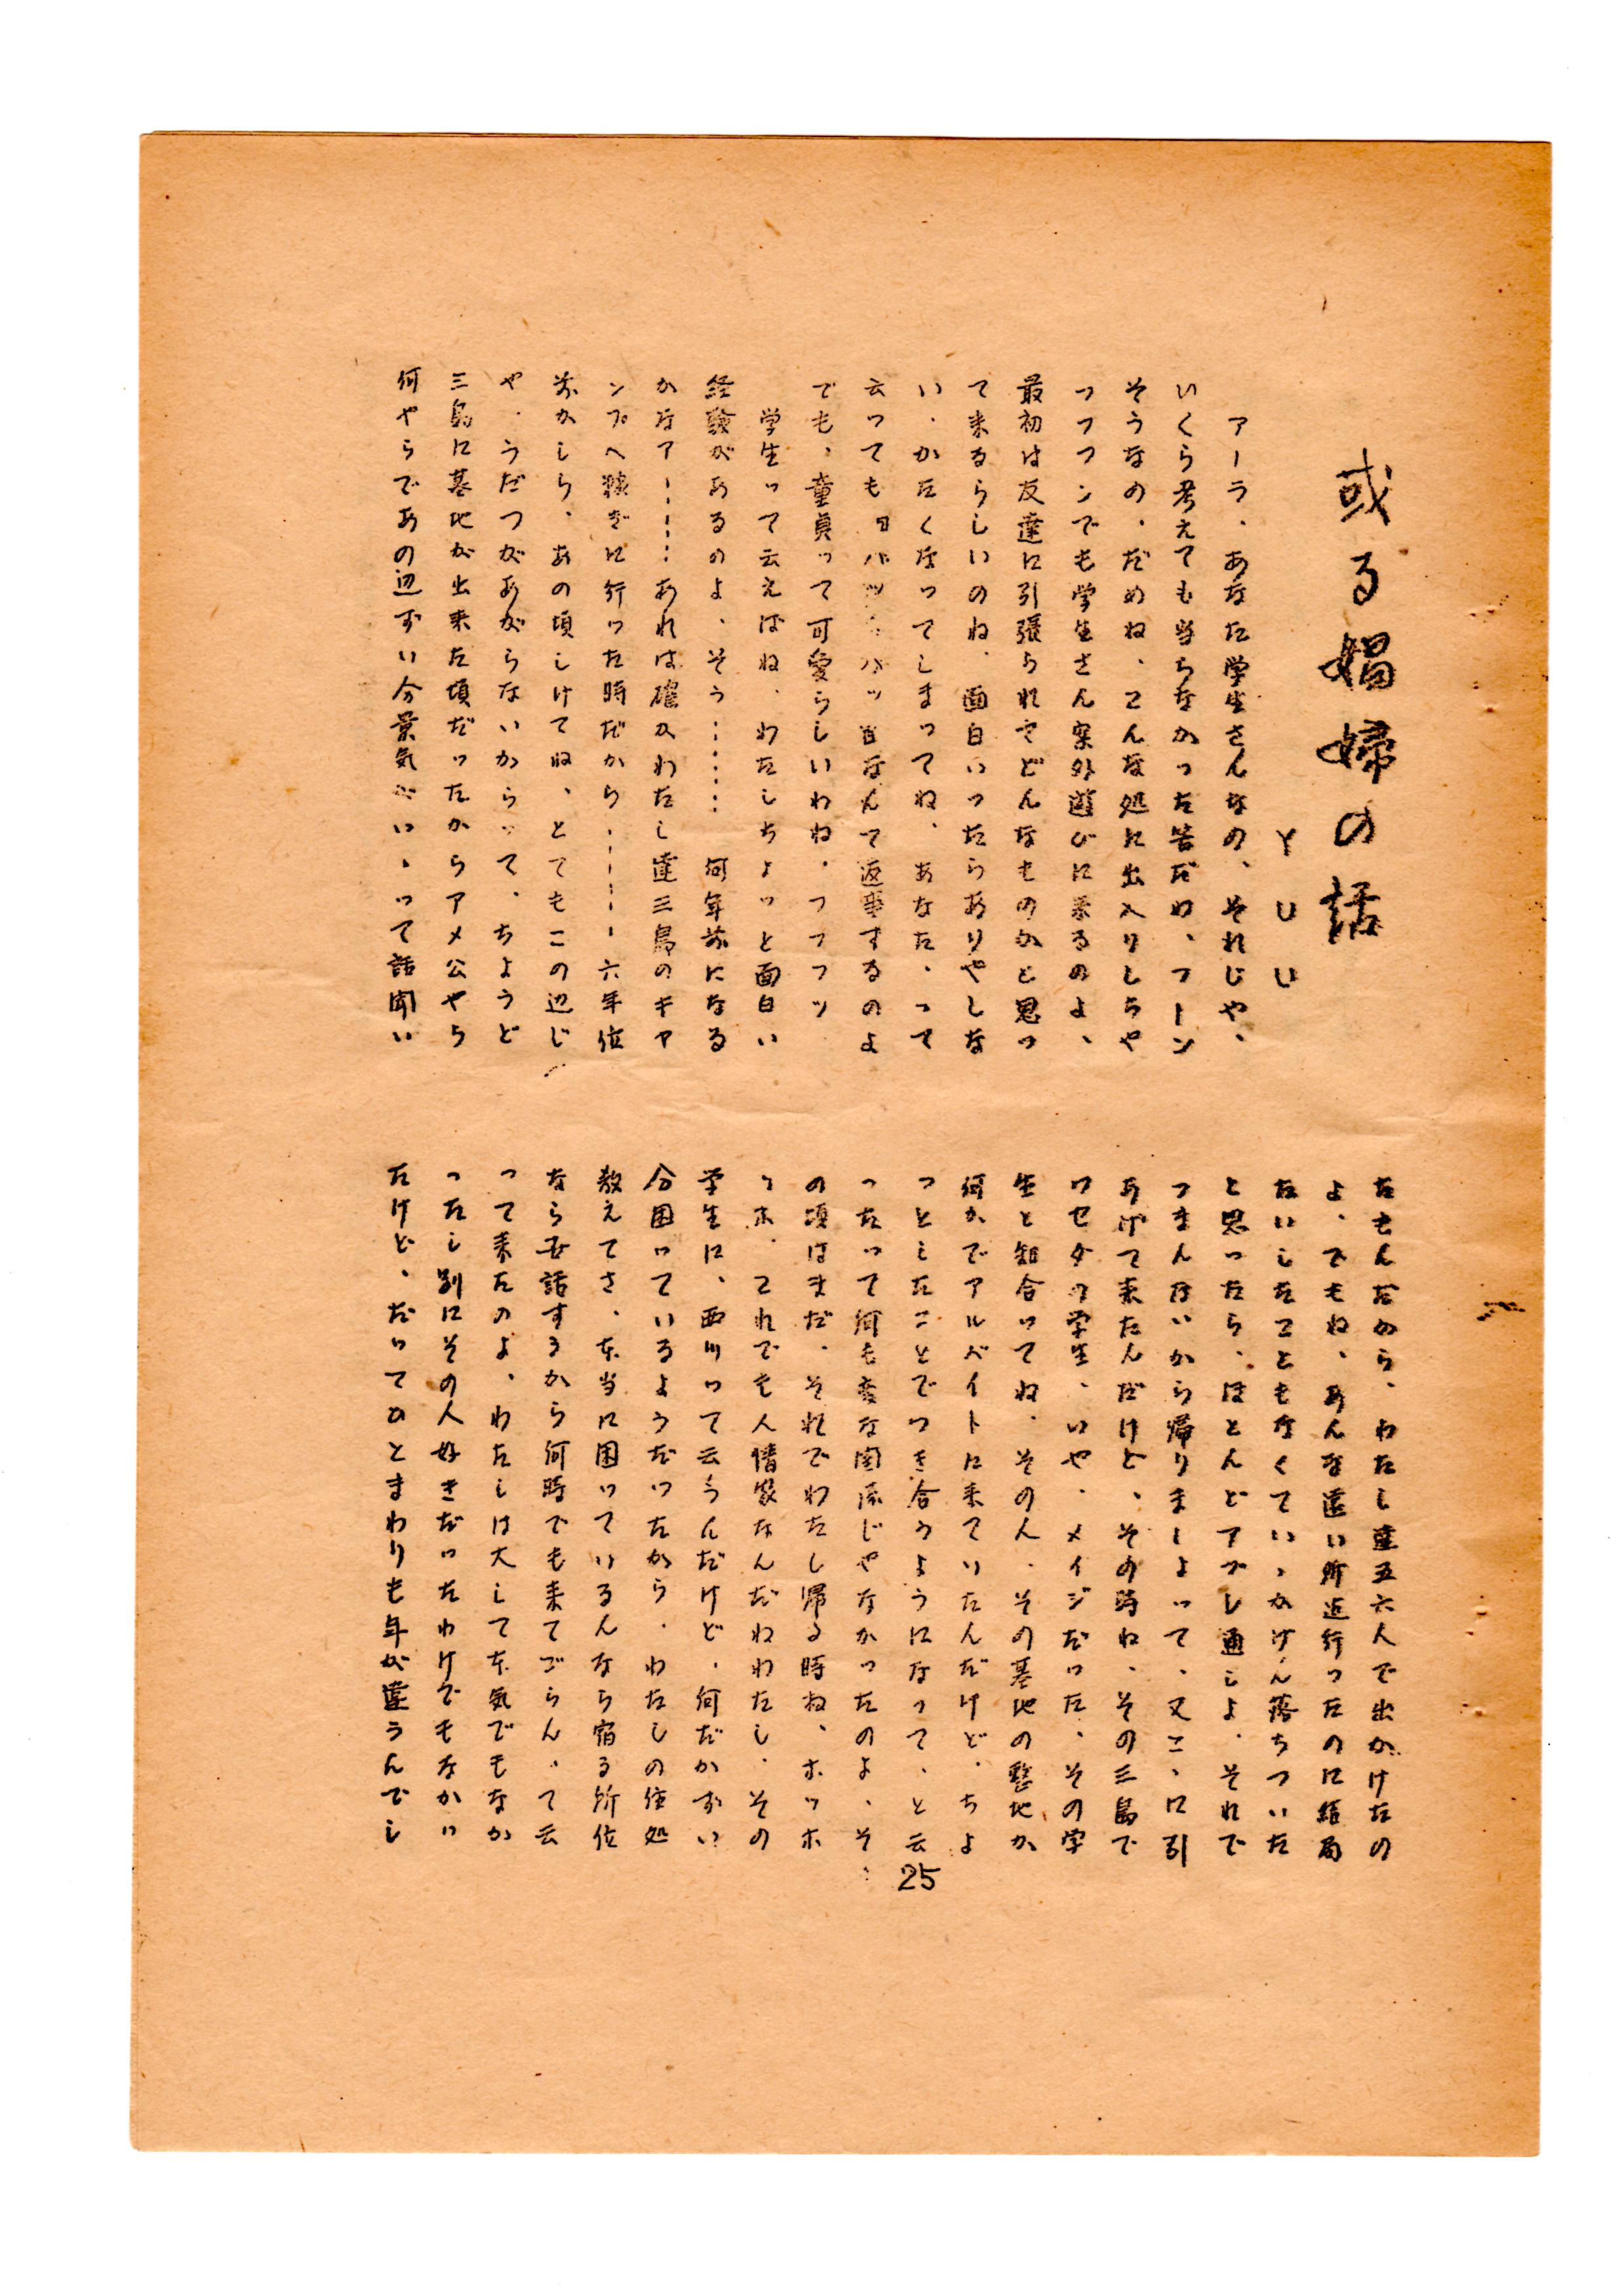 或る娼婦の話
Y U U
アーラ、あなた学生さんなの、それじや、
いくら考えても当ちなかった筈だわ、フーン
そうなの、だめね、こんな処に出入りしちゃ
フフフンでも学生さん案外遊びに来るのよ、
最初は友達に引張られてどんなものかと思っ
て来るらしいのね、面白いったらありやしな
い、かたくなってしまってね、あなた、って
云っても ハッ ハッ なんて返事するのよ
でも、童貞って可愛らしいわね、フフフッ
学生って云えばね、わたしちょっと面白い
経験があるのよ、そう……… 何年前になる
かなア………あれは確かわたし達三島のキャ
ンプへ稼ぎに行った時だから………六年位
前かしら、あの頃しけてね、とてもこの辺じ
や、うだつがあがらないからって、ちょうど
三島に基地が出来た頃だったからアメ公やら
何やらであの辺ずい分景気がいゝって話聞い
たもんだから、わたし達五六人で出かけたの
よ、でもね、あんな遠い所迄行ったのに結局
たいしたこともなくていゝかげん落ちついた
と思ったら、ほとんどアブレ通しよ、それで
つまんないから帰りましょって、又こゝに引
あげて来たんだけど、その時ね、その三島で
ワセダの学生、いや、メイジだった、その学
生と知合ってね、その人、その基地の整地か
何かでアルバイトに来ていたんだけど、ちょ
っとしたことでつき合うようになって、と云
ったって何も変な関係じゃなかったのよ、そ
の頃はまだ、それでわたし帰る時ね、ホッホ
ッホ、これでも人情家なんだねわたし、その
学生に、西川って云うんだけど、何だかずい
分困っているようだったから、わたしの住処
教えてさ、本当に困っているんなら宿る所位
なら世話するから何時でも来てごらん、て云
って来たのよ、わたしは大して本気でもなか
ったし別にその人好きだったわけでもなかっ
たけど、だってひとまわりも年が違うんでし
25